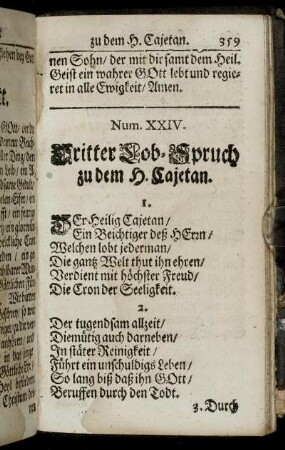 zu dem H. Cajetan. 359
nen Sohn/ der mit dir samt dem Heil.
Geist ein wahrer GOtt lebt und regie-
ret in alle Ewigkeit/ Amen.
Num. XXIV.
Dritter Lob-Spruch
zu dem H. Cajetan.
1.
DEr Heilig Cajetan/
Ein Beichtiger deß HErrn/
Welchen lobt jederman/
Die gantz Welt thut ihn ehren/
Verdient mit höchster Freud/
Die Cron der Seeligkeit.
2.
Der tugendsam allzeit/
Diemütig auch darneben/
In stäter Reinigkeit/
Führt ein unschuldigs Leben/
So lang biß daß ihn GOtt/
Beruffen durch den Todt.
3. Durch